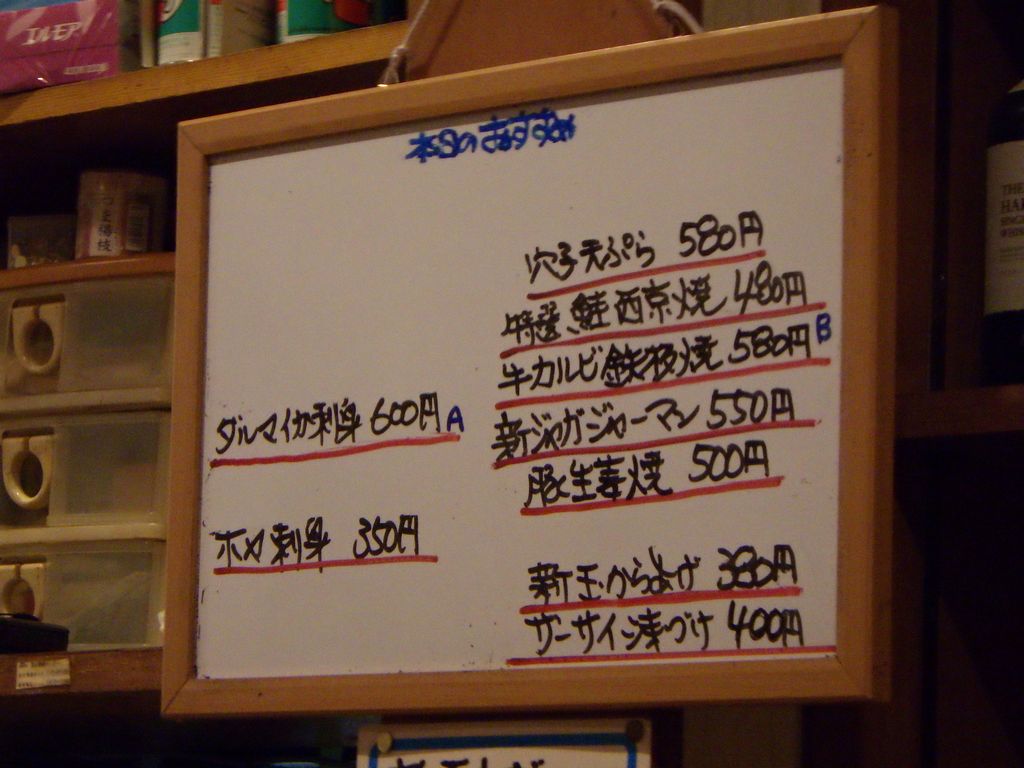 エルモア
つま楊枝
THE
本日のおすすめ
穴子天ぷら 580円
特選、鮭西京焼 480円
牛カルビ鉄板焼 580円 B
新ジャガジャーマン 550円
豚生姜焼 500円
新玉からあげ 380円
ザーサイ漬づけ 400円
ダルマイカ刺身 600円 A
ホヤ刺身 350円